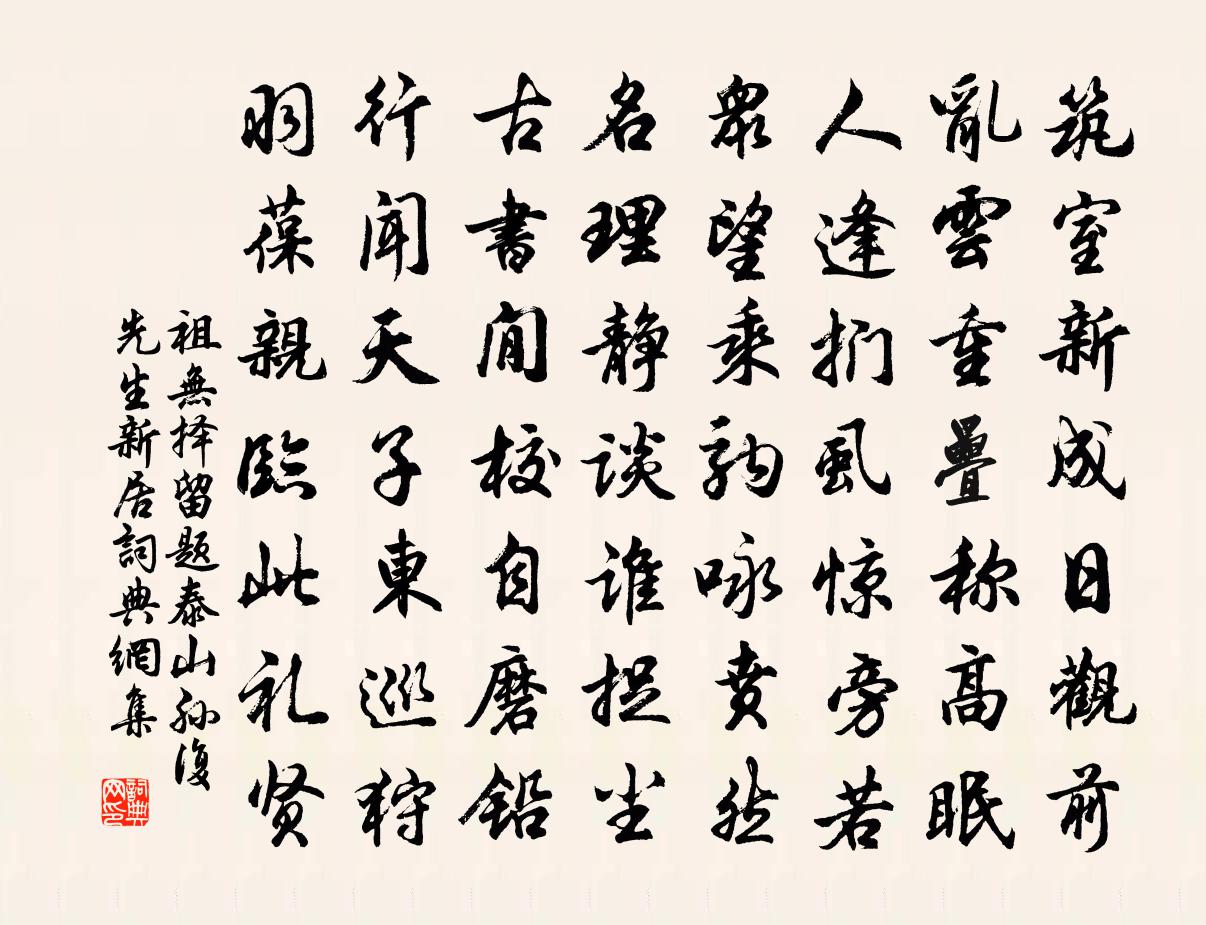 筑室新成日觀前
亂雲重疊称高眠
人逢扪虱惊旁若
衆望乘駒咏賁然
名理静谈谁捉尘
古書閒校自磨铅
行聞天子東巡狩
羽葆親臨此礼贤
祖無择留题泰山孙復
先生新居詞典網集
詞典网印